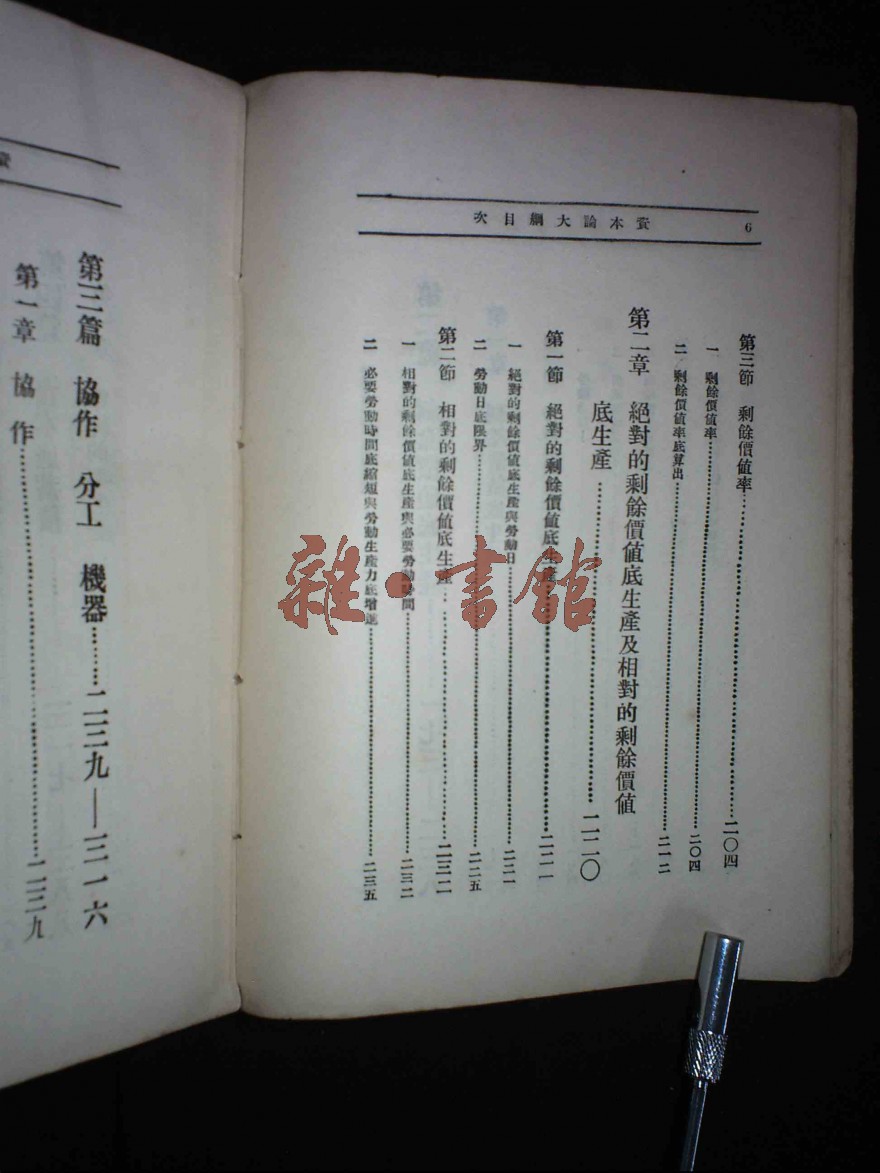 6 資本論大綱目次
第三節 剩餘價値率……二〇四
一 剩餘價値率……二〇四
二 剩餘價値率底算出……二一二
第二章 絕對的剩餘價値底生產及相對的剩餘價値
底生產……二二〇
第一節 絕對的剩餘價値底生產……二二一
一 絕對的剩餘價値底生產與勞動日……二二一
二 勞動日底限界……二二五
第二節 相對的剩餘價値底生產……二三二
一 相對的剩餘價値底生產與必要勞動時間……二三二
二 必要勞動時間底縮短與勞動生產力底增進……二三五
資
第三篇 協作 分工 機器……二三九—三一六
第一章 協作……二三九
雜·書館